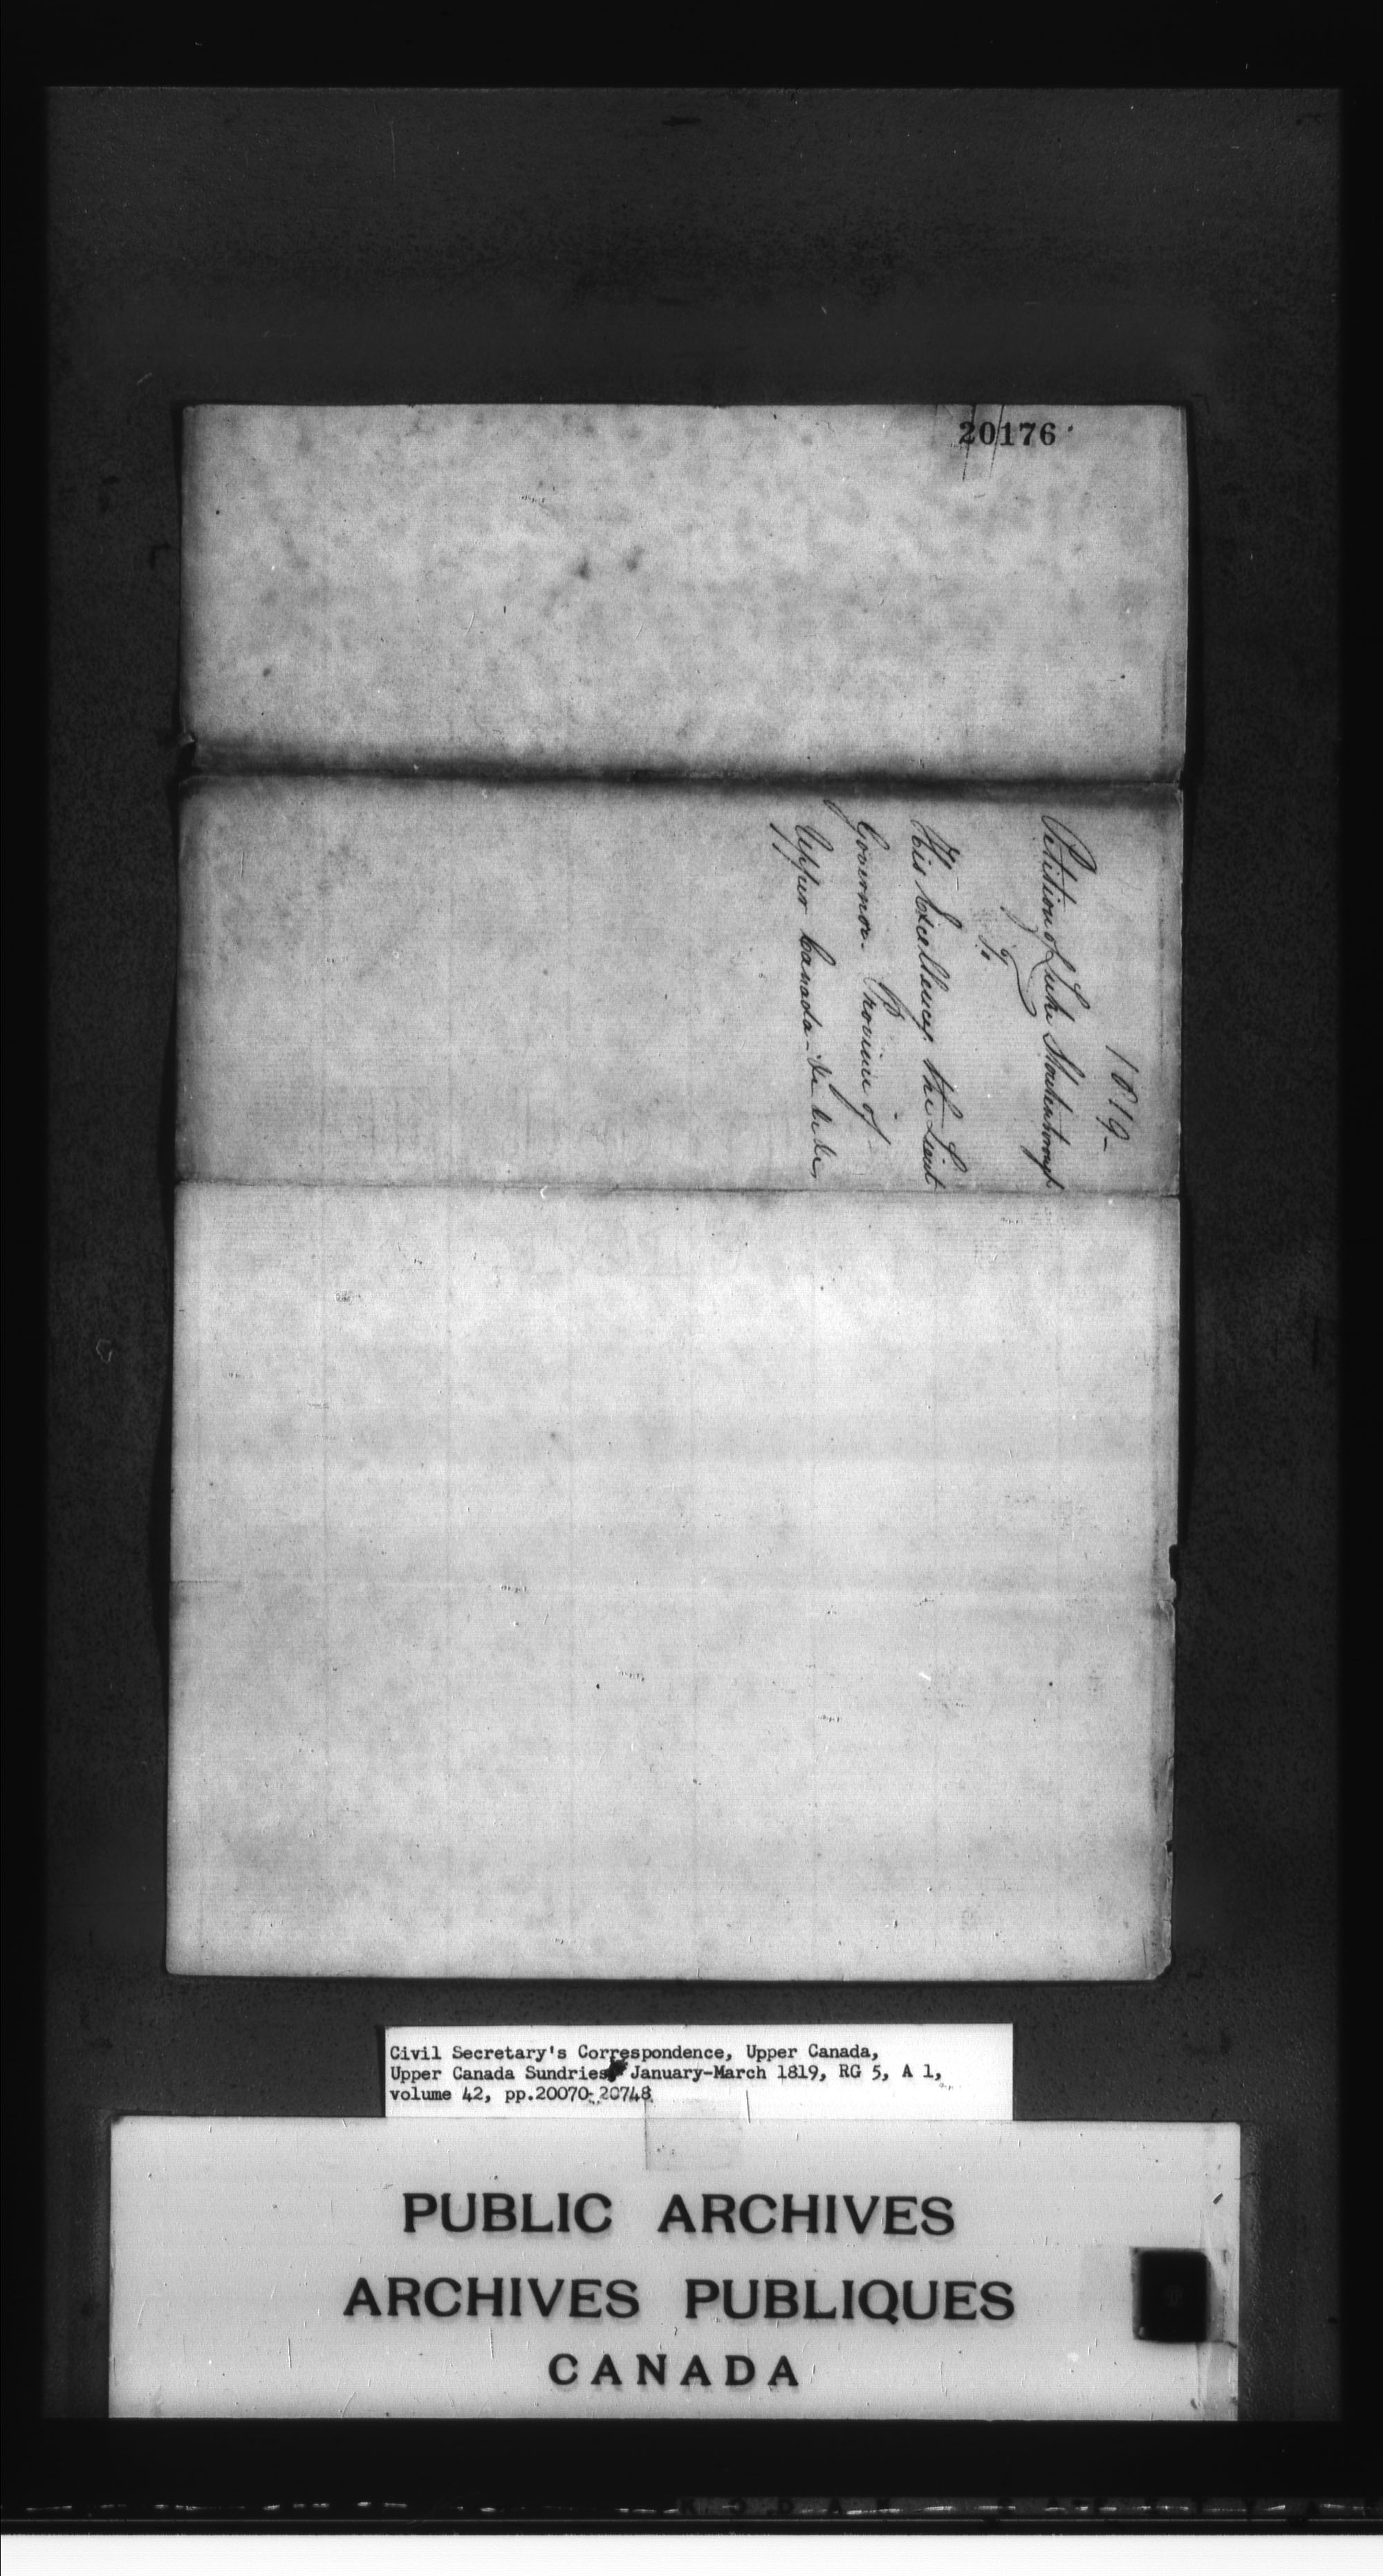 20176
1819-
Petition of Luke Stoutenborough
To
His Excellency the Lieut
Governor. Province of
Upper Canada - &c &c &c,
Civil Secretary's Correspondence, Upper Canada,
Upper Canada Sundries January-March 1819, RG 5, A 1,
volume 42, pp.20070-20748
PUBLIC ARCHIVES
ARCHIVES PUBLIQUES
CANADA